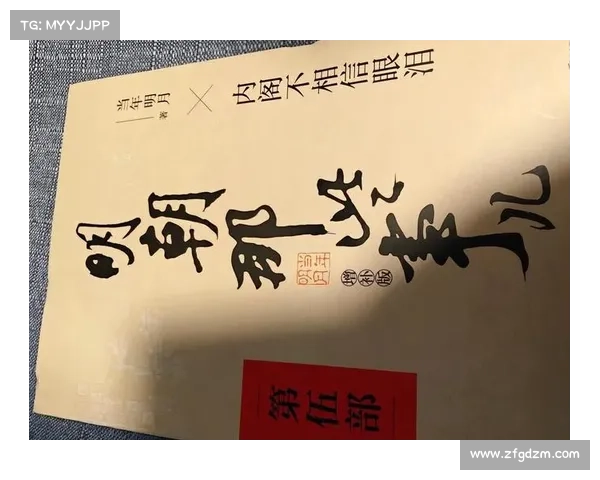 TG: MYYJJPP
当年明月 著
内阁不相信眼泪
明朝那些事儿
当年明月
增补版
第伍部
www.zfgdzm.com